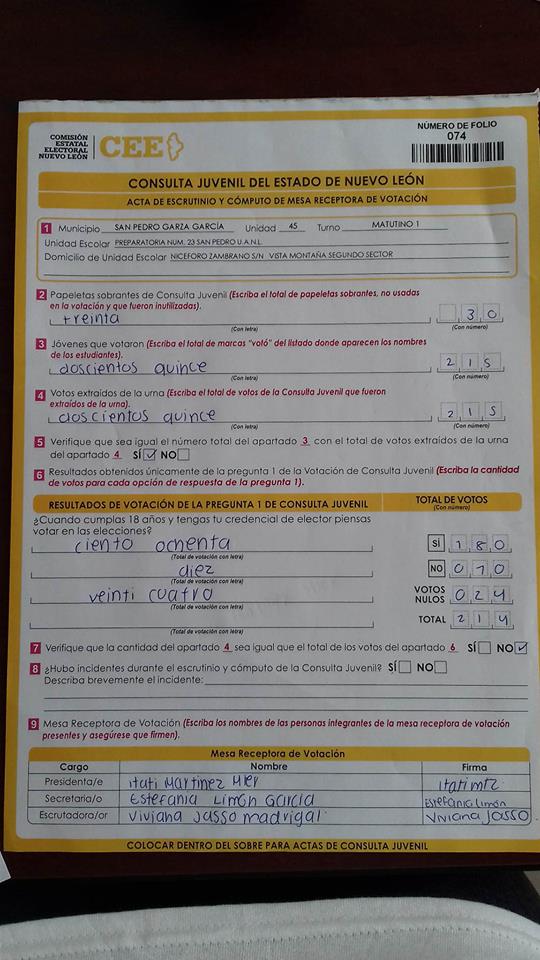 COMISIÓN
ESTATAL
ELECTORAL
NUEVO LEÓN
CEE
NÚMERO DE FOLIO
074
CONSULTA JUVENIL DEL ESTADO DE NUEVO LEÓN
ACTA DE ESCRUTINIO Y CÓMPUTO DE MESA RECEPTORA DE VOTACIÓN
1 Municipio SAN PEDRO GARZA GARCÍA Unidad 45 Turno MATUTINO 1
Unidad Escolar PREPARATORIA NUM. 23 SAN PEDRO U.A.N.L.
Domicilio de Unidad Escolar NICEFORO ZAMBRANO S/N VISTA MONTAÑA SEGUNDO SECTOR
2 Papeletas sobrantes de Consulta Juvenil (Escriba el total de papeletas sobrantes, no usadas
en la votación y que fueron inutilizadas).
treinta 30
(Con letra) (Con número)
3 Jóvenes que votaron (Escriba el total de marcas "votó" del listado donde aparecen los nombres
de los estudiantes).
doscientos quince 215
(Con letra) (Con número)
4 Votos extraídos de la urna (Escriba el total de votos de la Consulta Juvenil que fueron
extraídos de la urna).
doscientos quince 215
(Con letra) (Con número)
5 Verifique que sea igual el número total del apartado 3 con el total de votos extraídos de la urna
del apartado 4 SÍ ✓ NO
6 Resultados obtenidos únicamente de la pregunta 1 de la Votación de Consulta Juvenil (Escriba la cantidad
de votos para cada opción de respuesta de la pregunta 1).
RESULTADOS DE VOTACIÓN DE LA PREGUNTA 1 DE CONSULTA JUVENIL TOTAL DE VOTOS
(Con número)
¿Cuando cumplas 18 años y tengas tu credencial de elector piensas
votar en las elecciones?
ciento ochenta SÍ 180
(Total de votación con letra)
diez NO 010
(Total de votación con letra)
veinti cuatro VOTOS NULOS 024
(Total de votación con letra)
TOTAL 214
(Total de votación con letra)
7 Verifique que la cantidad del apartado 4 sea igual que el total de los votos del apartado 6 SÍ NO ✓
8 ¿Hubo incidentes durante el escrutinio y cómputo de la Consulta Juvenil? SÍ NO
Describa brevemente el incidente:
9 Mesa Receptora de Votación (Escriba los nombres de las personas integrantes de la mesa receptora de votación
presentes y asegúrese que firmen).
Mesa Receptora de Votación
Cargo Nombre Firma
Presidenta/e Itati Martinez Mier Itati mtz.
Secretaria/o Estefania Limón Garcia Estefania Limón
Escrutadora/or Viviana Jasso madrigal Viviana Jasso
COLOCAR DENTRO DEL SOBRE PARA ACTAS DE CONSULTA JUVENIL